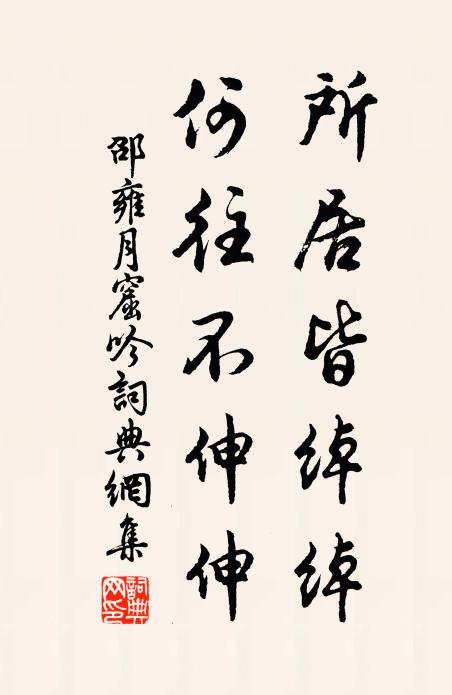 所居皆綽綽
何往不伸伸
邵雍月窟吟詞典網集
詞典網印